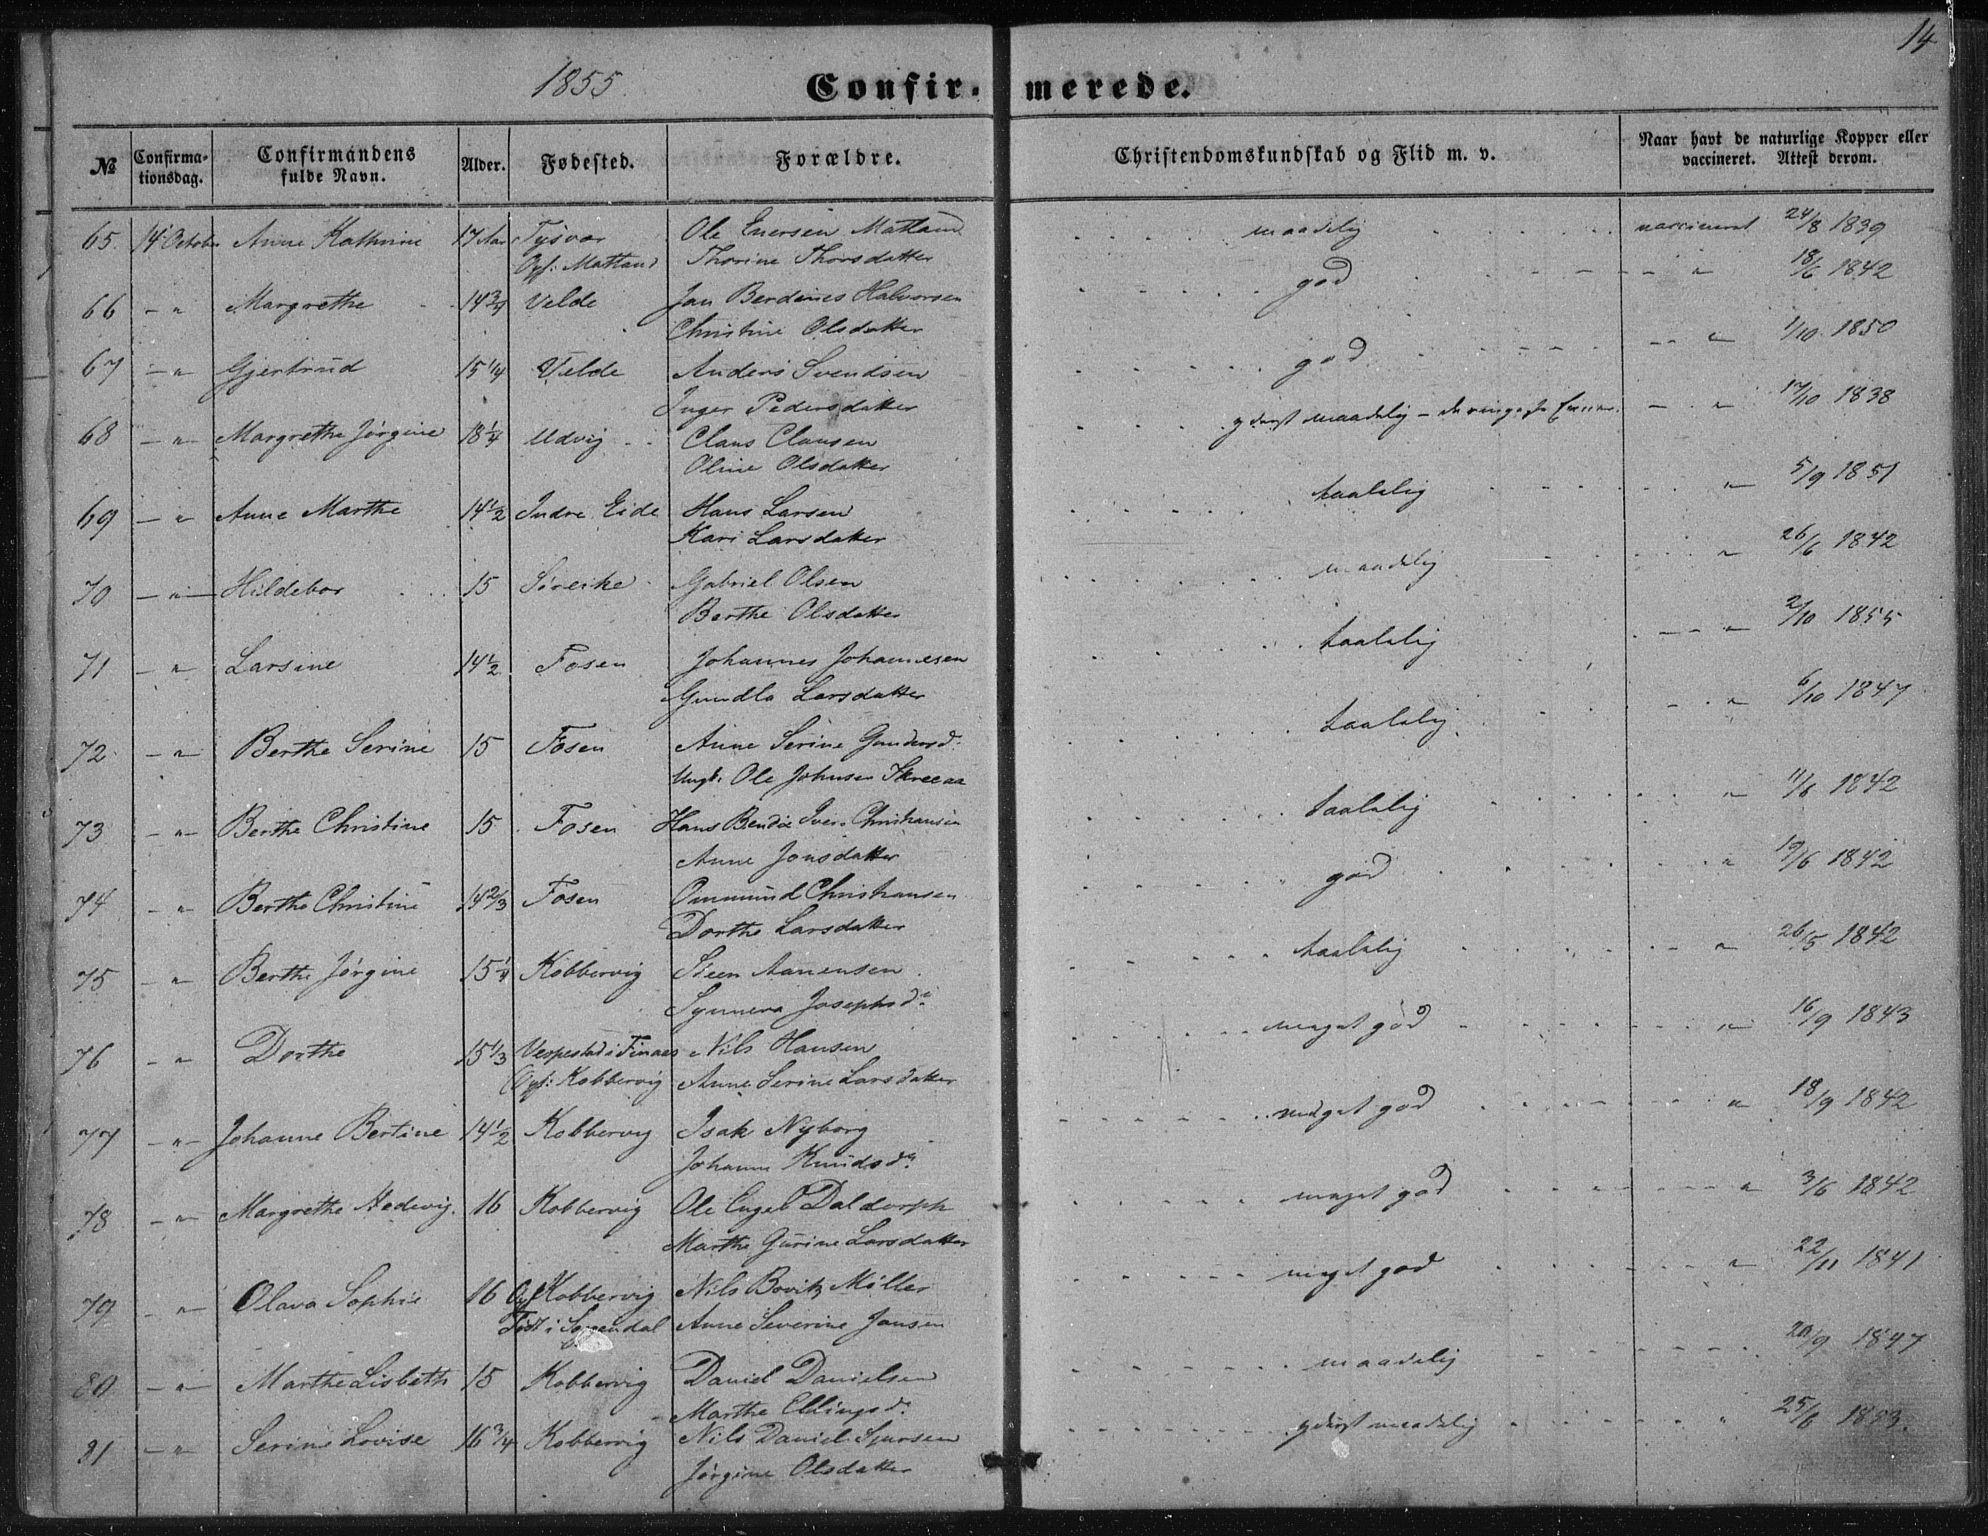 14
1855. Confir- merede.
№ Confirma-tionsdag. Confirmandens fulde Navn. Alder. Fødested. Forældre. Christendomskundskab og Flid m. v. Naar havt de naturlige Kopper eller vaccineret. Attest derom.
65. 14 October Anne Kathrine 17 Aar Tysvær Ole Enersen Matland maadelig vaccineret 24/8 1839
Opf: Matland Thorine Thorsdatter
66 - " Margrethe 14 3/4 Velde Jan Berdines Halvorsen god - " 18/6 1842
Christine Olsdatter
67 - " Gjertrud 15 1/4 Velde Anders Svendsen god - " 1/10 1850
Inger Pedersdatter
68 - " Margrethe Jørgine 18 1/4 Udvig Claus Clausen yderst maadelig - de ringeste Evner. - " 17/10 1838
Oline Olsdatter
69 - " Anne Marthe 14 1/2 Indre Eide Hans Larsen taalelig " 5/9 1851
Kari Larsdatter
70 - " - Hildebor 15 Gabriel Olsen maadelig " 26/6 1842
Berthe Olsdatter
71 - " Larsine 14 1/2 Fosen Johannes Johannesen taalelig - " 2/10 1855
Gundla Larsdatter
72 - " Berthe Serine 15 Fosen Anne Serine Gundersd: taalelig - " 6/10 1847
Ungk. Ole Johnsen
73 - " Berthe Christine 15 Fosen Hans Iver Christiansen taalelig " 11/6 1842
Anne Jonsdatter
74 - " Berthe Christine 14 2/3 Fosen Ommund Christiansen god " 19/6 1842
Dorthe Larsdatter
75 - " Berthe Jørgine 15 1/4 Kobbervig Steen Aanensen taalelig " 26/5 1842
Synnera Josephsd:
76 - " Dorthe 15 1/3 Vespestad i Finaas Nils Hansen meget god " 16/9 1843
Opf: Kobbervig Anne Serine Larsdatter
77 - " Johanne Bertine 14 1/2 Kobbervig Isak Nyborg meget god " 18/9 1842
Johanne Knudsd:
78 - " Margrethe Hedevig. 16 Kobbervig Ole Engel Daldorph meget god " 3/6 1842
Marthe Gurine Larsdatter
79 - " Olava Sophie 16 Opf Kobbervig Nils Bovitz Møller meget god " 22/11 1841
Født i Anne Severine Jansen
80 - " Marthe Lisbeth 15 Kobbervig Daniel Danielsen maadelig 20/9 1847
Marthe Ellingsd:
81 - " Serine Lovise 16 3/4 Kobbervig Nils Daniel yderst maadelig " 25/6
Jørgine Olsdatter